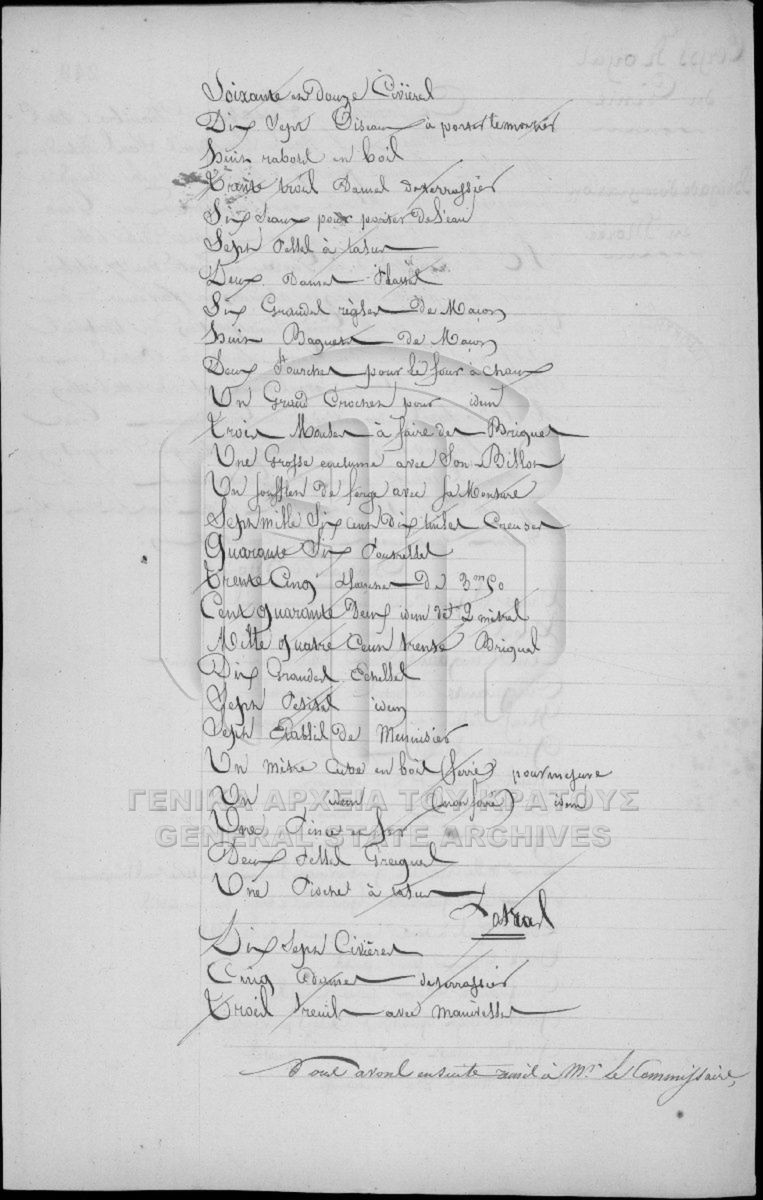 Soixante et Douze Civières
Dix Sept Oiseaux à porter le mortier
huit rabots en bois
Trente trois Dames de terrassier
Six Seaux pour porter de l'eau
Sept Pelles à
Deux Dames Plates
Six Grandes règles de Maçon
huit Baguets de Maçon
Deux Fourches pour le four à chaux
Un Grand Crochet pour idem
Trois Moules à faire des Briques
Une Grosse enclume avec Son Billot
Un soufflet de forge avec sa Monture
Sept mille Six cent dix tuiles Creuses
Quarante Six Poutrelles
Trente Cinq Planches De 3m50
Cent quarante Deux idem de 2 mètres
Mille quatre Cent trente Briques
Dix Grandes Echelles
Sept Petites idem
Sept Etablis De Menuisier
Un mètre Cube en bois (ferré) pour mesure
Un idem (non ferré) idem
Une Pince en fer
Deux Pelles Grecques
Une Pioche à
Patras
Dix Sept Civières
Cinq Dames de terrassier
Trois treuils avec manivelles
Nous avons ensuite remis à Mr. le Commissaire,
ΓΕΝΙΚΑ ΑΡΧΕΙΑ ΤΟΥ ΚΡΑΤΟΥΣ
GENERAL STATE ARCHIVES